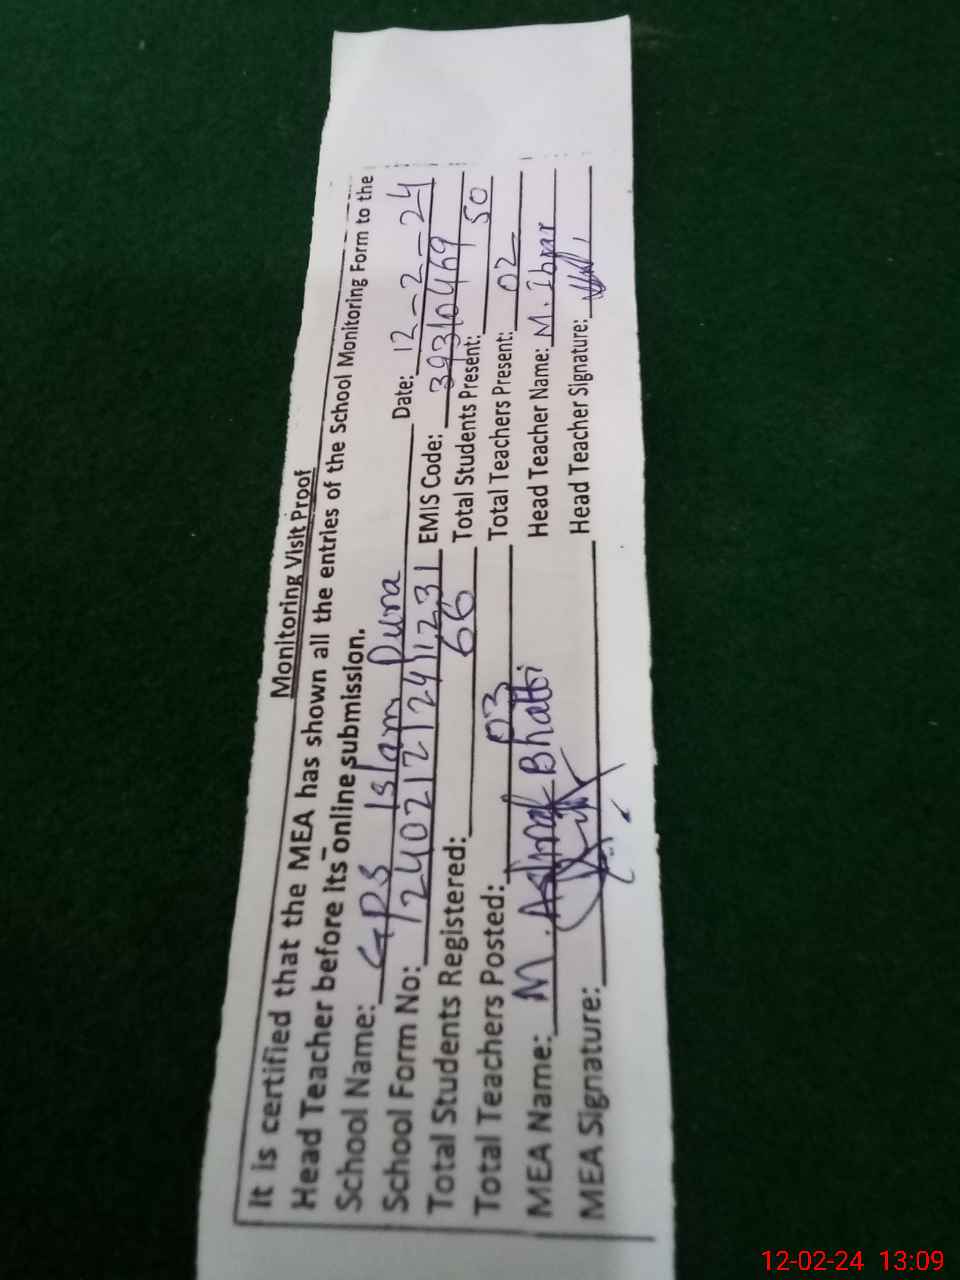 Monitoring Visit Proof
It is certified that the MEA has shown all the entries of the School Monitoring Form to the
Head Teacher before its online submission.
School Name: GPS Islam Pura Date: 12-2-24
School Form No: 124021212411231 EMIS Code: 39310469
Total Students Registered: 66 Total Students Present: 50
Total Teachers Posted: 03 Total Teachers Present: 02
MEA Name: M. Ashraf Bhatti Head Teacher Name: M.
MEA Signature: Head Teacher Signature:
12-02-24 13:09